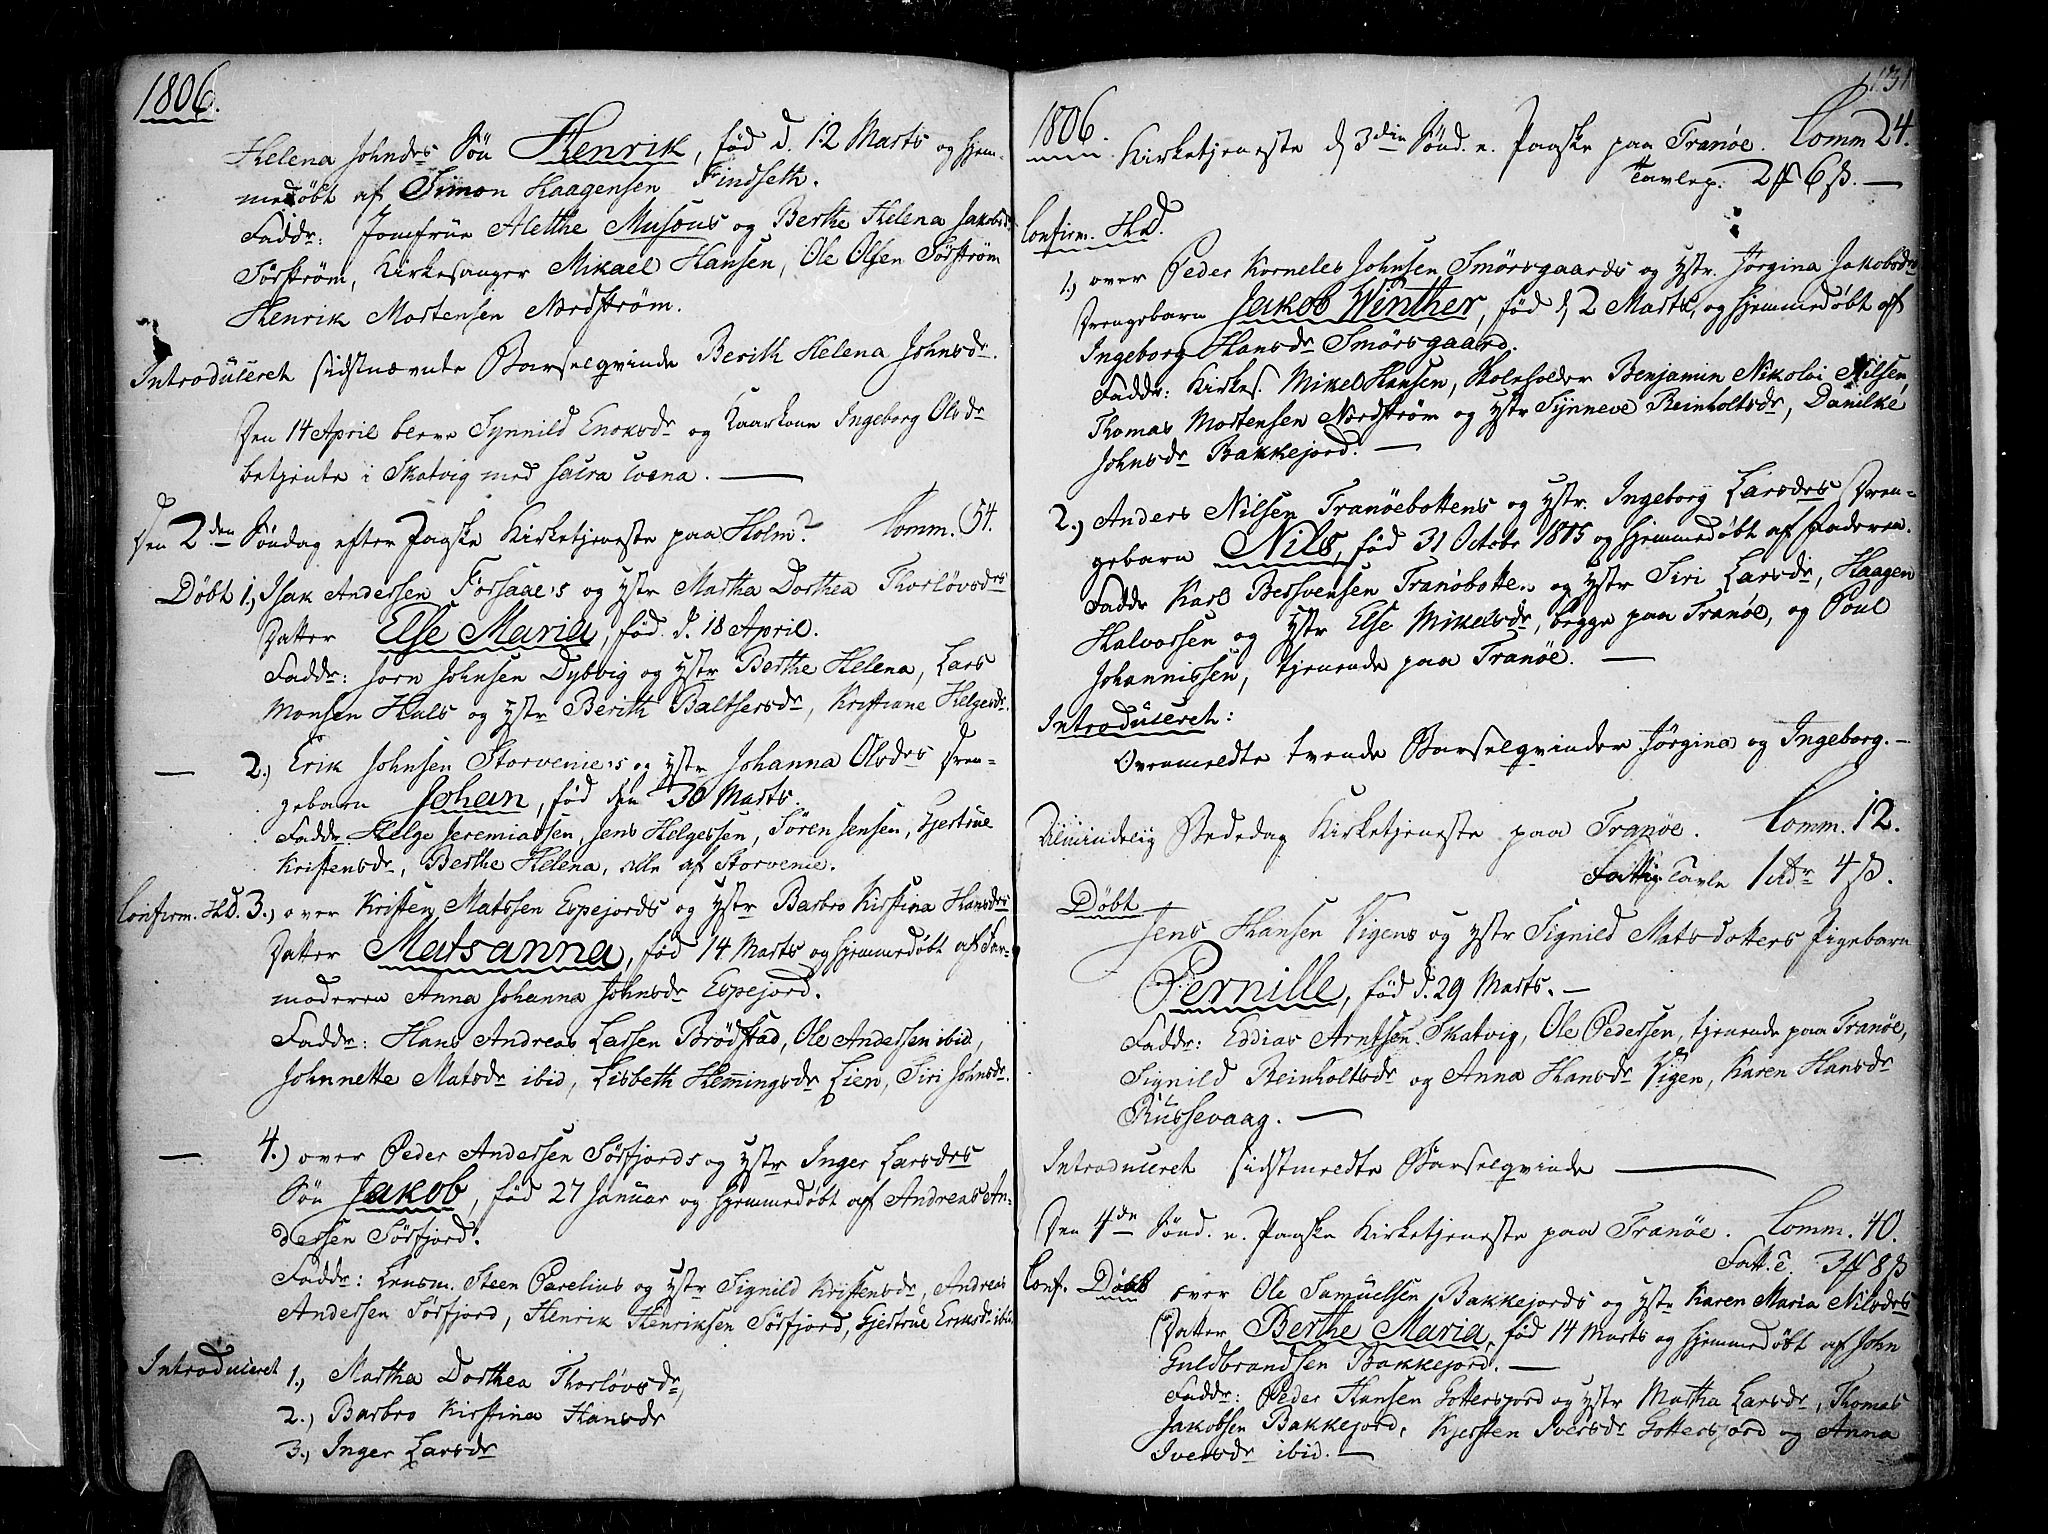 1806.
Helena Johnsdrs Søn Henrik, fød d. 12 Marts og hjem-
medøbt af Simon Haagensen Findseth.
Faddr: Jomfrue Alethe Musous og Berthe Helena Jakobsdr
Sørstrøm, Kirkesanger Mikael Hansen, Ole Olsen Sørstrøm
Henrik Mortensen Nordstrøm.
Introduceret sidstnævnte Barselqvinde Berith Helena Johnsdr.
Den 14 April bleve Synnild Enoksdr og Kaarkone Ingeborg Olsdr
betjente i Skatvig med sacra coena.
Den 2den Søndag efter Paaske Kirketjeneste paa Holm? Comm. 54.
Døbt 1., Isak Andersen Forsaae's og hstr Martha Dorthea Thorløvsdrs
Datter Else Maria, fød d. 18 April.
Faddr: Jorn Johnsen Dybvig og hstr Berthe Helena, Lars
Monsen Hals og hstr Berith Baltsersdr, Kristiane Helgesdr.
— 2., Erik Johnsen Storvenie's og hstr Johanna Olsdrs Dren-
gebarn Johan, fød den 30 Marts.
Faddr. Helge Jeremiassen, Jens Helgessen, Søren Jensen, Gjertrue
Kristensdr, Berthe Helena, alle af Storvenie.
Confirm. HD. 3., over Kristen Matssen Espejords og hstr Barbro Kirstina Hansdrs
Datter Matsanna, fød 14 Marts og hjemmedøbt af Far-
moderen Anna Johanna Johnsdr Espejord.
Faddr: Hans Andreas Larsen Brødstad, Ole Andersen ibid,
Johnnette Matsdr ibid, Lisbeth Hemmingsdr Lien, Siri Johnsdr.
— 4.) over Peder Andersen Sørfjords og hstr Inger Larsdrs
Søn Jakob, fød 27 Januar og hjemmedøbt af Andreas An-
dersen Sørfjord.
Faddr: Lensm. Steen Parelius og hstr Signild Kristensdr, Andreas
Andersen Sørfjord, Henrik Henriksen Sørfjord, Gjertrue Eriksdr ibid.
Introduceret 1., Martha Dorthea Thorløvsdr,
2., Barbro Kirstina Hansdr
3., Inger Larsdr
131
1806. Kirketjeneste d 3die Sønd. e. Paaske paa Tranøe. Comm 24.
Tavlep. 2 ff 6 ß. —
Confirm. HD.
1., over Peder Korneles Johnsen Smørsgaards og hstr. Jørgina Jakobsdrs
Drengebarn Jakob Winther, fød d 2 Marts, og hjemmedøbt af
Ingeborg Hansdr Smørsgaard.
Faddr: Kirkes. Mikel Hansen, Skoleholder Benjamin Nikolai Nilsen,
Thomas Mortensen Nordstrøm og hstr Synneve Reinholtsdr, Danilke
Johnsdr Bakkejord. —
2., Anders Nilsen Tranøebottens og hstr. Ingeborg Larsdrs Dren-
gebarn Nils, fød 31 Octobr 1805 og hjemmedøbt af Faderen.
Faddr Karl Bersvensen Tranøbotten og hstr Siri Larsdr, Haagen
Halvorsen og hstr Else Mikelsdr, begge paa Tranøe, og Poul
Johannissen, tjenende paa Tranøe. —
Introduceret:
Ovenmeldte tvende Barselqvinder Jørgina og Ingeborg. —
Almindelig Bededag Kirketjeneste paa Tranøe. Comm. 12.
Fattig Tavle 1 rdr 4 ß.
Døbt
Jens Hansen Vigens og hstr Signild Matsdotters Pigebarn
Pernille, fød d. 29 Marts. —
Faddr: Eddias Arntsen Skatvig, Ole Pedersen, tjenende paa Tranøe,
Signild Reinholtsdr og Anna Hansdr Vigen, Karen Hansdr
Russevaag. —
Introduceret sidstmeldte Barselqvinde —
Den 4de Sønd. e. Paaske Kirketjeneste paa Tranøe. Comm. 40.
Fatt. t. 3 ff 8 ß
Conf. Døbt over Ole Samuelsen Bakkejords og hstr Karen Maria Nilsdrs
Datter Berthe Maria, fød 14 Marts og hjemmedøbt af John
Guldbrandsen Bakkejord. —
Faddr: Peder Hansen Gottersjord og hstr Martha Larsdr, Thomas
Jakobsen Bakkejord, Kjersten Iversdr Gottersjord og Anna
Iversdr ibid. —